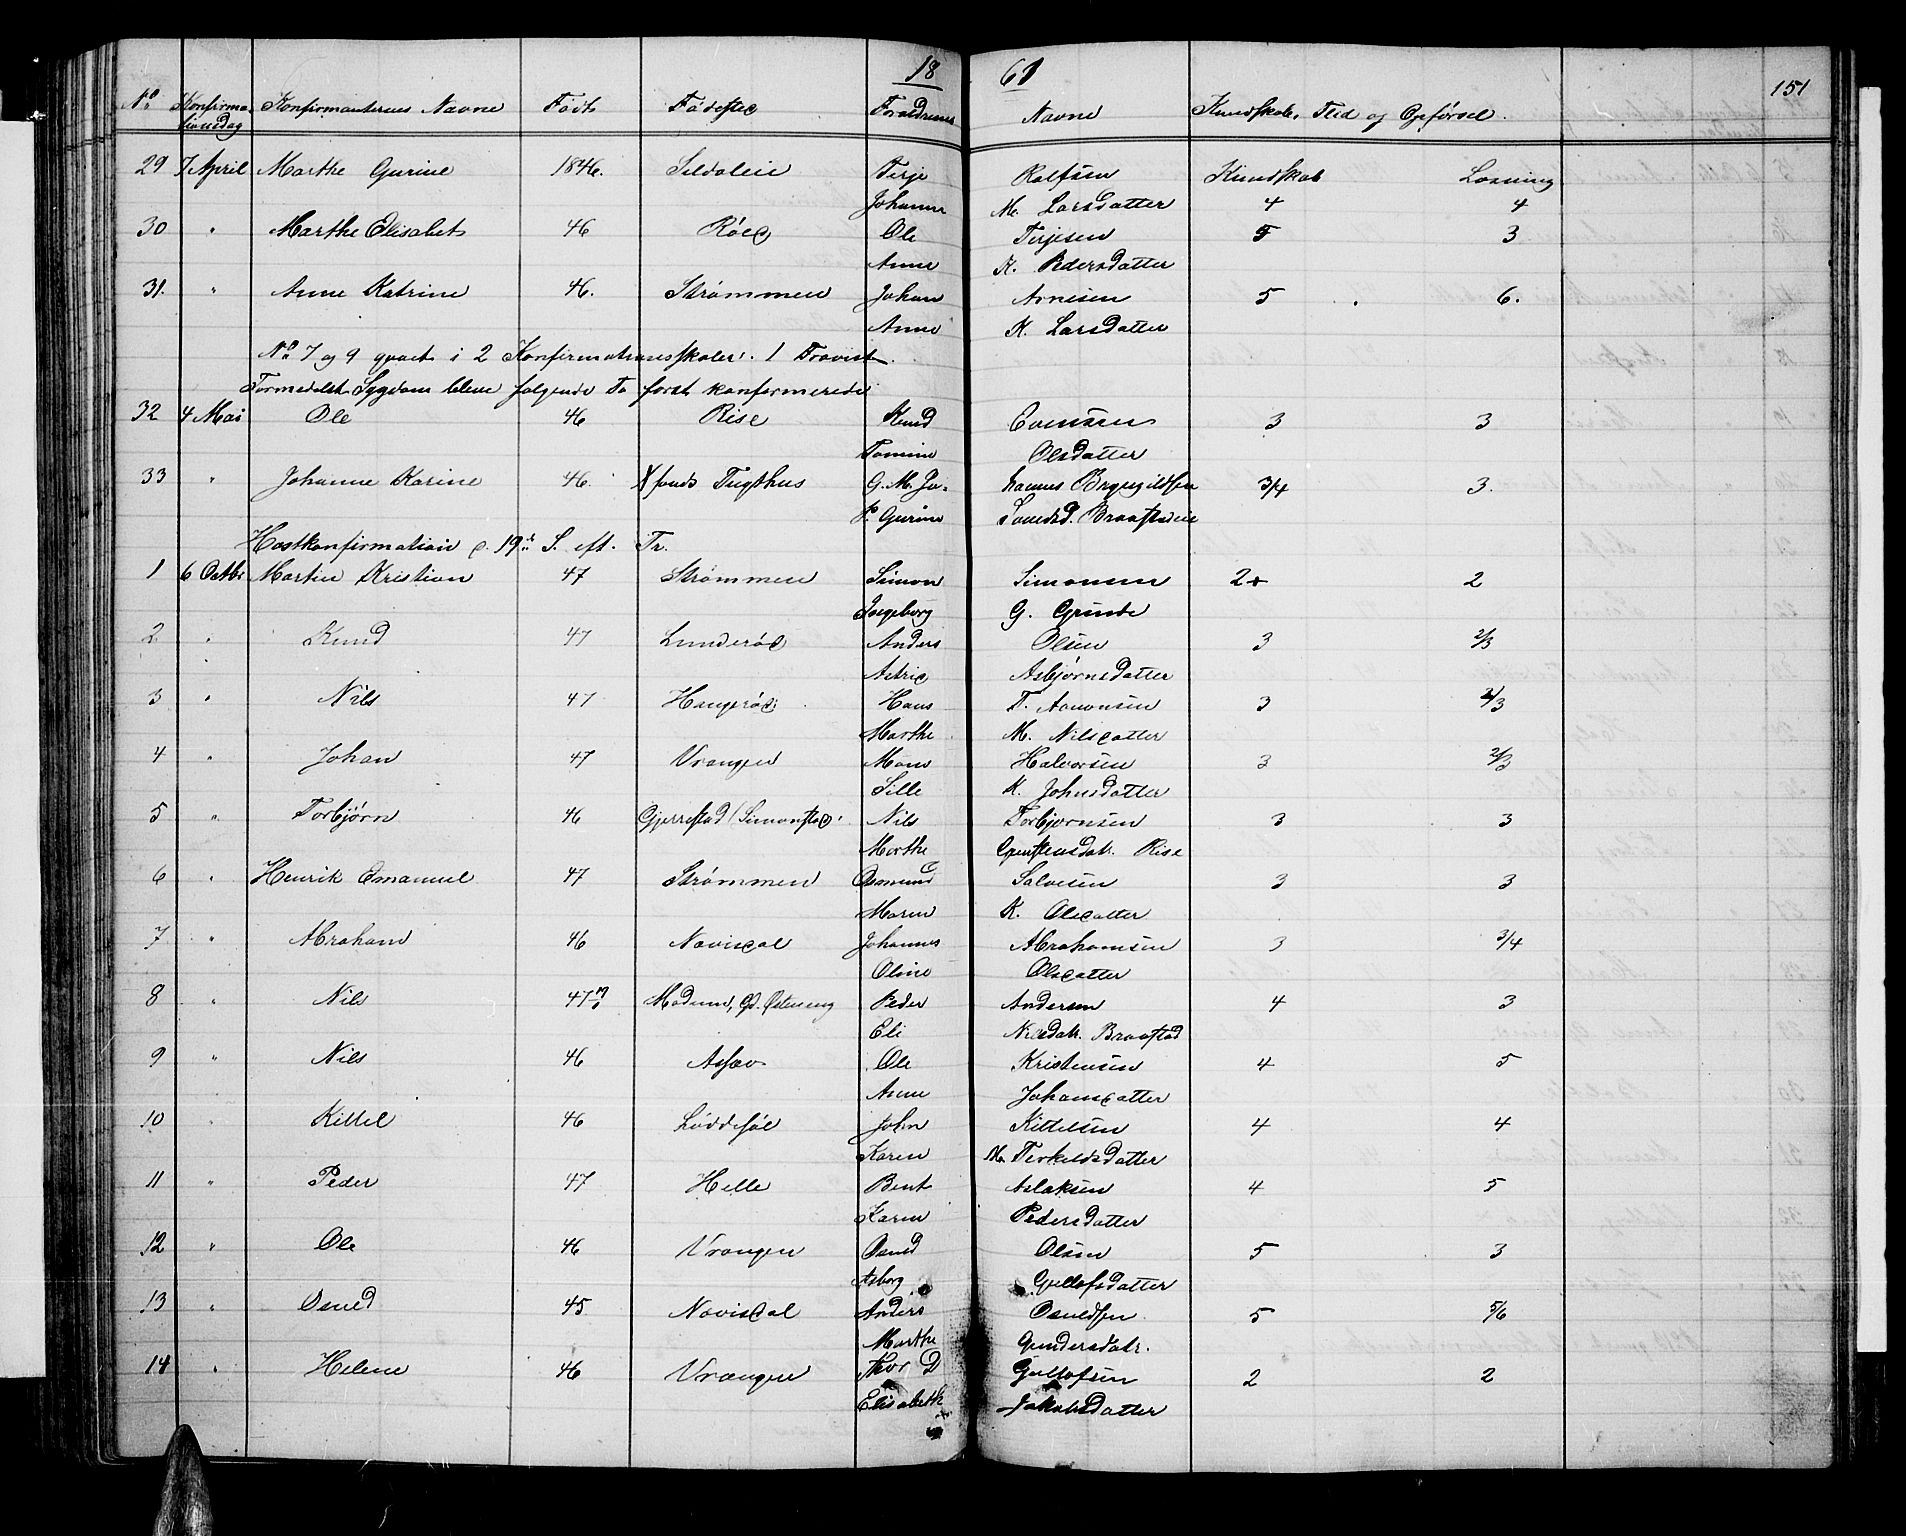 18 61
151
No Konfirmationsdag Konfirmanternes Navne Født Fødested Forældrenes Navne Kundskab, Flid og Opførsel.
29 7 April Marthe Gurine 1846. Sildaleie Terje Rolfsen Kundskab Læsning
Johanne M. Larsdatter 4 4
30 " Marthe Elisabet 46 Røed Ole Terjesen 5 3
Anne K. Pedersdatter
31. " Anne Katrine 46. Strømmen Johan Arnesen 5 6.
Anne K. Larsdatter
No 7 og 9 gaaet i 2 Konfirmationsskoler. 1 Fravist
Formedelst Sygdom bleve følgende to først konfirmerede
32 4 Mai Ole 46 Rise Knud Evensen 3 3
Tomine Olsdatter
33 " Johanne Karine 46. Xsands Tugthus G. M. Jo- hannes Brynildsen 3/4 3.
P. Gurine Braastadeie
Høstkonfirmation d. 19de S. eft. Tr.
1 6 Octbr Martin Kristian 47 Strømmen Simon Simonsen 2+ 2
Ingeborg G. Grinde
2 " Knud 47 Lunderød Anders Olsen 3 2/3
Astrid Asbjørnsdatter
3 " Nils 47 Haugerød Hans T. Aanonsen 3 2/3
Marthe M. Nilsdatter
4 " Johan 47 Vrangen Mons Halvorsen 3 2/3
Sille K. Johnsdatter
5 " Torbjørn 46 Gjerrestad (Simonstad) Nils Torbjørnsen 3 3
Marthe Rise
6 " Henrik Emanuel 47 Strømmen Osmund Salvesen 3 3
Maren K. Olsdatter
7 " Abraham 46 Navisdal Johannes Abrahamsen 3 3/4
Oline Olsdatter
8 " Nils 47 Modum, Gd. Østeseng Peder Andersen 4 3
Eli Nilsdatr. Braastad
9 " Nils 46 Assæv Ole Kristensen 4 5
Anne Johansdatter
10 " Kittel 46 Løddesøl John Kittelsen 4 4
Karen M. Terkeldsdatter
11 " Peder 47 Helle Bent Aslaksen 4 5
Karen Pedersdatter
12 " Ole 46 Vrangen Osuld Olsen 5 3
Asborg Gullofsdatter
13 " Osuld 45 Navisdal Anders Osuldsen 5 5/6
Marthe Gundersdatr.
14 " Helene 46 Vrangen Thor D Gullofsen 2 2
Elisabeth Jakobsdatter